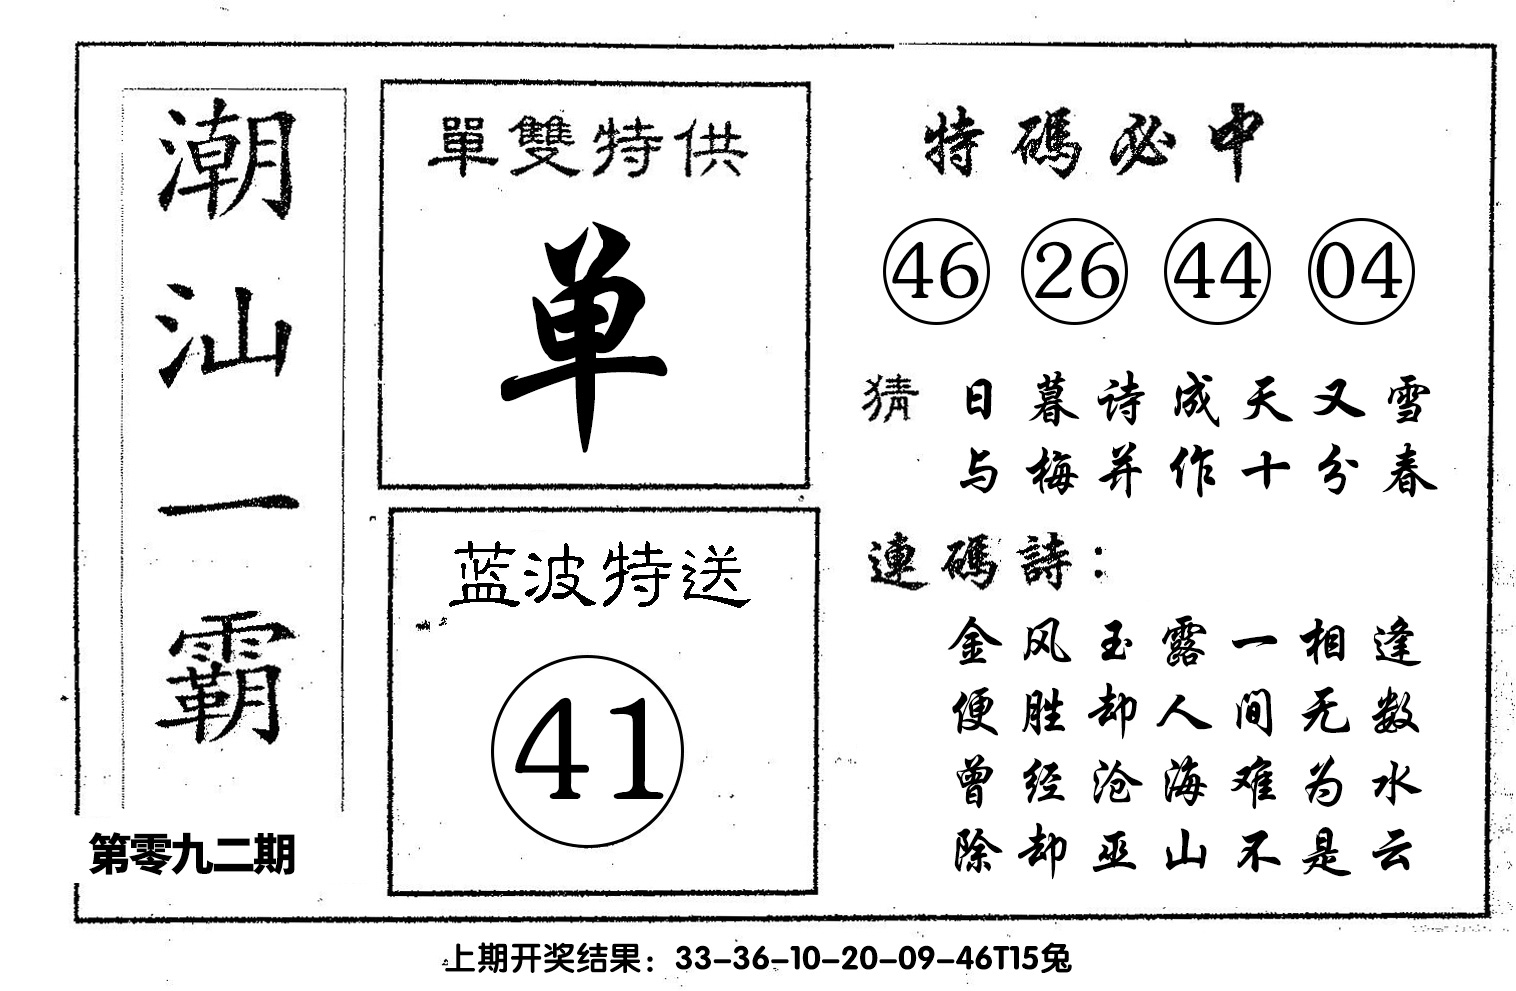 潮汕一霸
第零九二期
單雙特供
单
蓝波特送
41
特碼必中
46 26 44 04
猜 日暮诗成天又雪
与梅并作十分春
連碼詩：
金风玉露一相逢
便胜却人间无数
曾经沧海难为水
除却巫山不是云
上期开奖结果：33-36-10-20-09-46T15兔